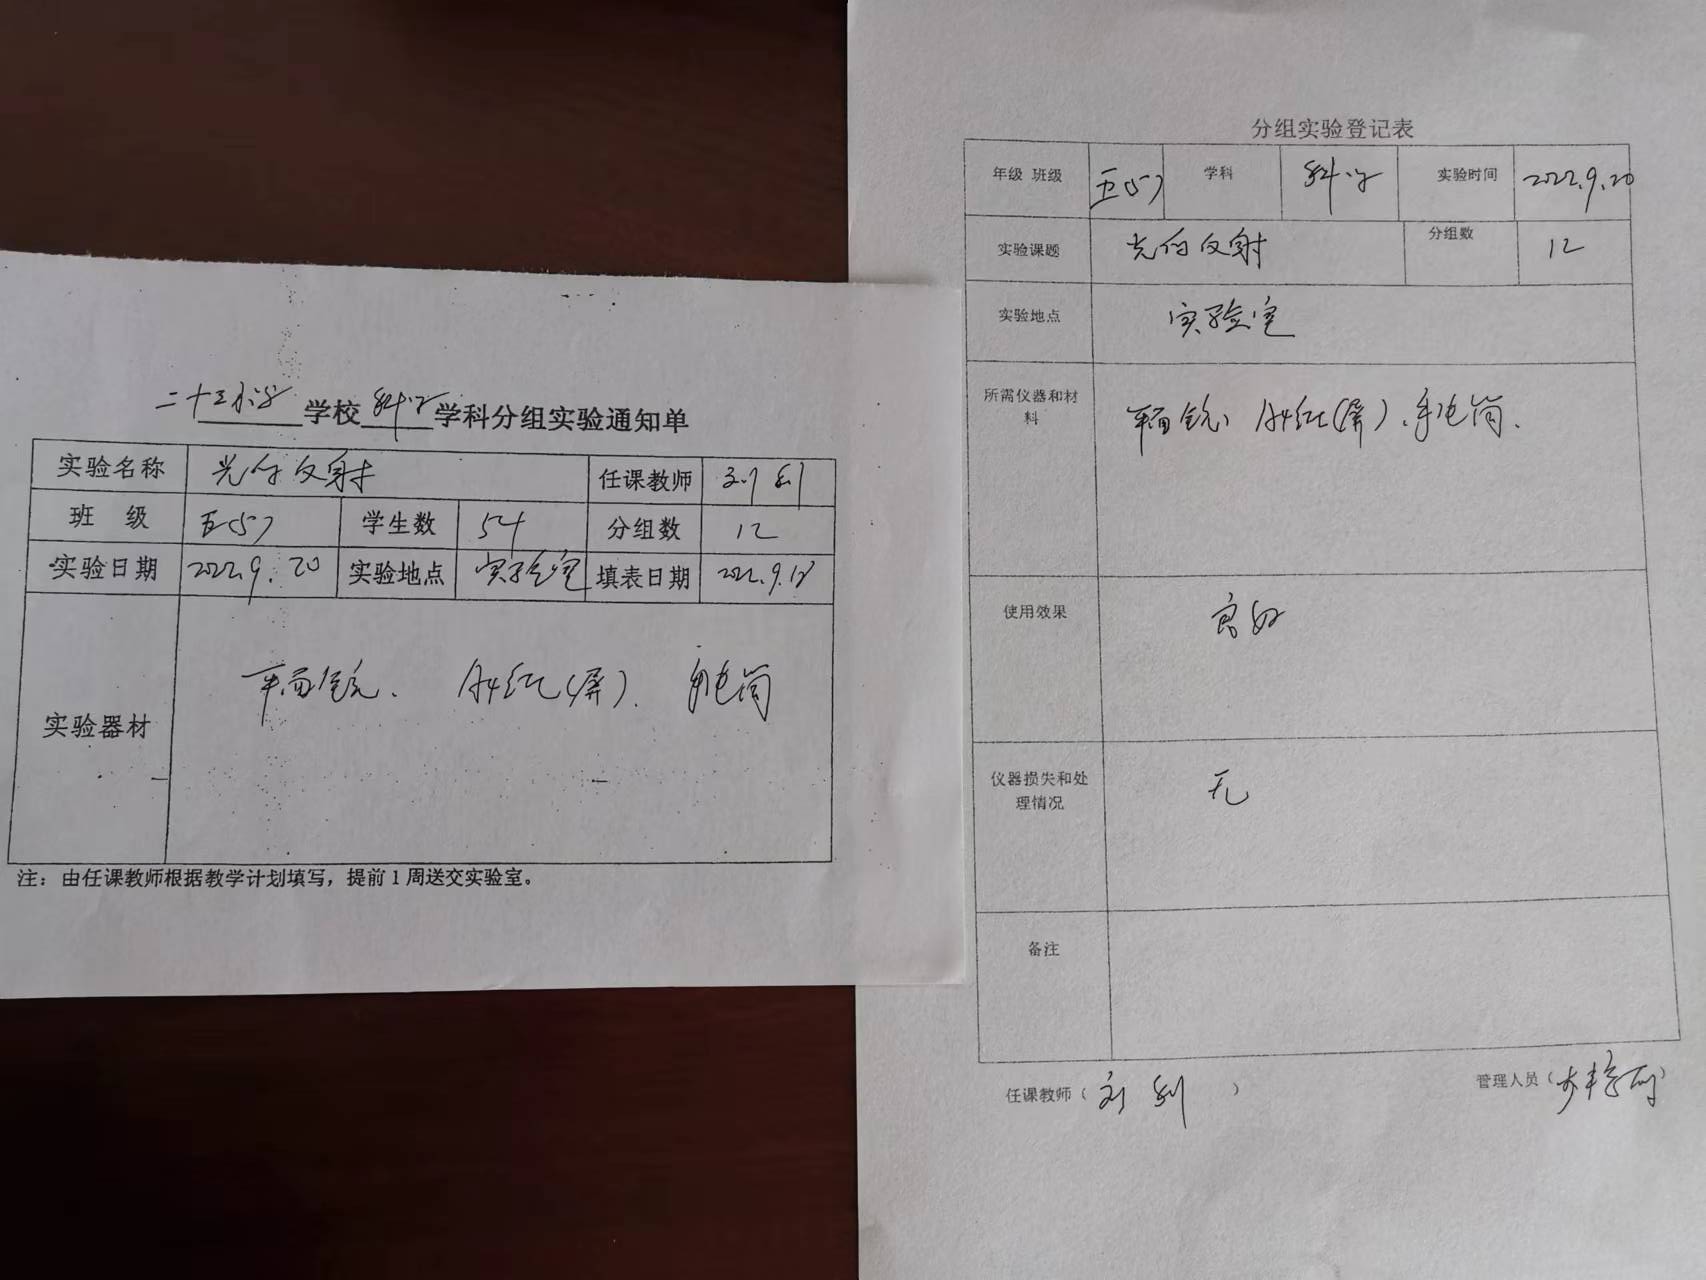 二十三小学学校科学学科分组实验通知单
实验名称 光的反射 任课教师
班 级 五(5) 学生数 54 分组数 12
实验日期 2022.9.20 实验地点 实验室 填表日期 2022.9.12
实验器材 平面镜、A4纸(屏)、手电筒
注：由任课教师根据教学计划填写，提前1周送交实验室。
分组实验登记表
年级 班级 五(5) 学科 科学 实验时间 2022.9.20
实验课题 光的反射 分组数 12
实验地点 实验室
所需仪器和材
料
平面镜、A4纸(屏)、手电筒.
使用效果 良好
仪器损失和处
理情况
无
备注
任课教师（ ）
管理人员（ ）